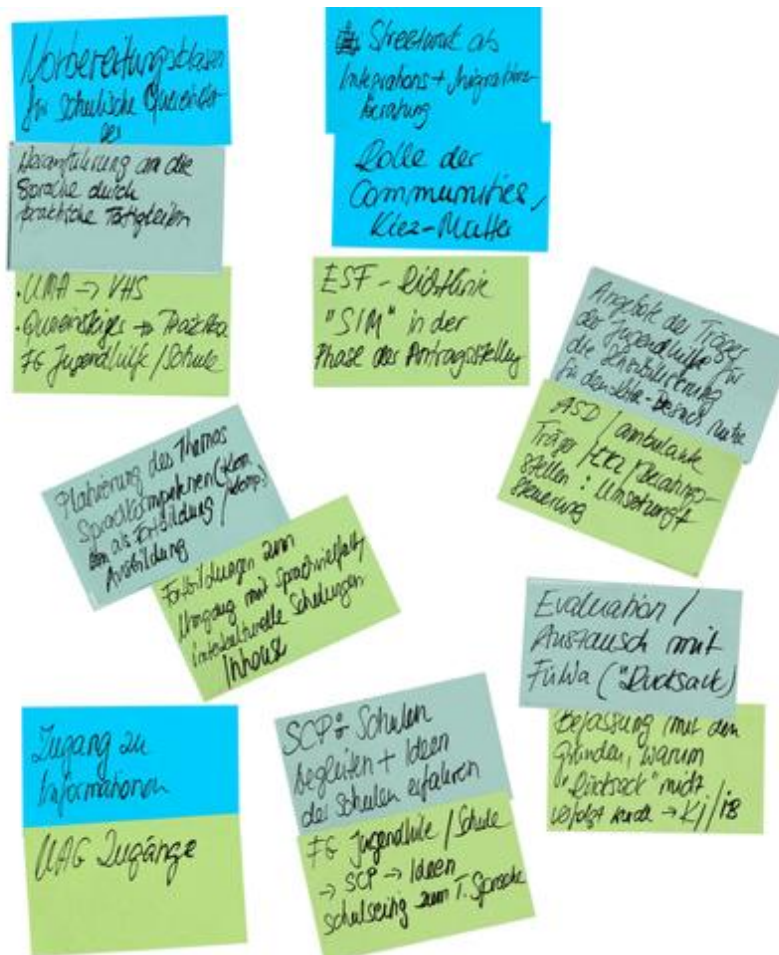 Vorbereitungsklassen
für schulische Quereinstei-
ger
Heranführung an die
Sprache durch
praktische Tätigkeiten
• UMA → VHS
• Quereinsteiger →
FG Jugendhilfe / Schule
Streetwork als
Integrations + Migrations-
beratung
Rolle der
Communities,
Kiez-Mütter
ESF - Richtlinie
"SIM" in der
Phase der Antragsstellung
Angebote der Träger
der Jugendhilfe für
die Sensibilisierung
für den Kita-Besuch nutzen
ASD / ambulante
Träger / / Beratungs-
stellen : Umsetzung +
Steuerung
Platzierung des Themas
Sprachkompetenzen
als Fortbildung /
Ausbildung
Fortbildungen zum
Umgang mit Sprachvielfalt,
interkulturelle Schulungen
Inhouse
Evaluation /
Austausch mit
FüWa ("Rucksack")
Befassung mit den
Gründen, warum
"Rucksack" nicht
verfolgt wurde → Kj / iB
Zugang zu
Informationen
UAG Zugänge
SCP: Schulen
begleiten + Ideen
der Schulen erfahren
FG Jugendhilfe / Schule
→ SCP → Ideen
schulseitig zum T. Sprache